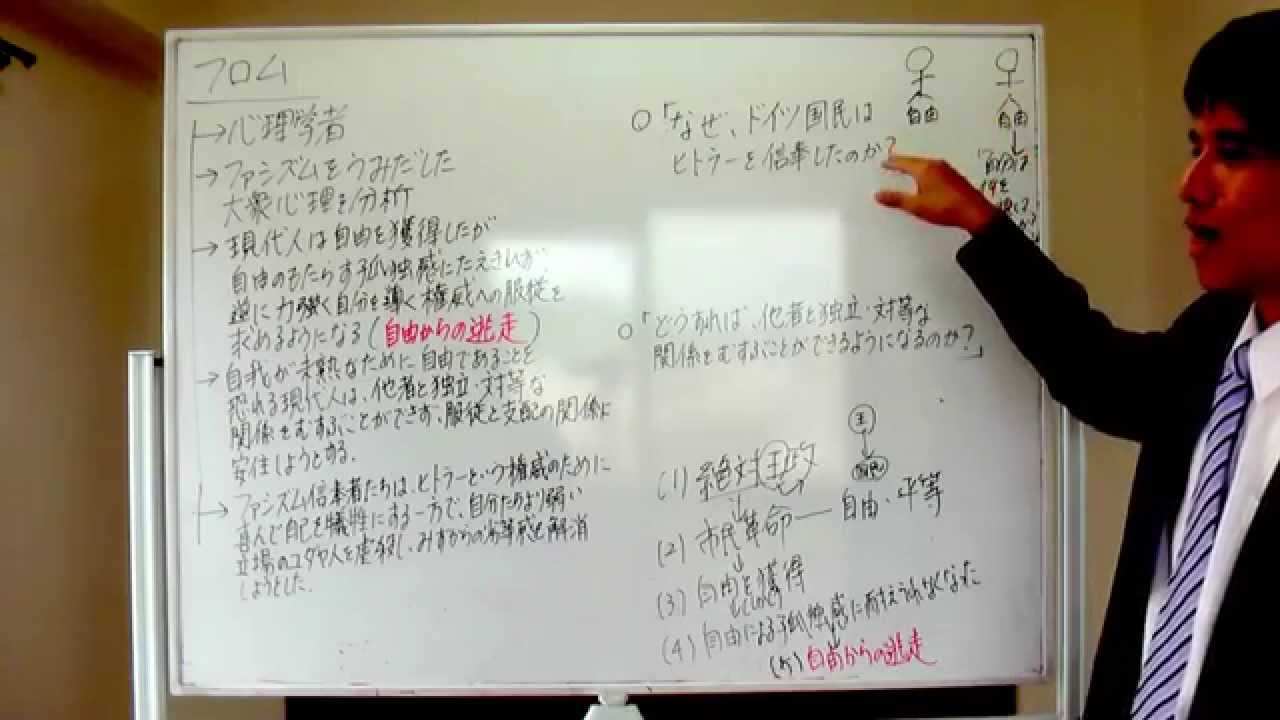 フロム
→心理学者
→ファシズムをうみだした
大衆心理を分析
→現代人は自由を獲得したが
自由のもたらす孤独感にたえきれず
逆に力強く自分を導く権威への服従を
求めるようになる(自由からの逃走)
→自我が未熟なために自由であることを
恐れる現代人は、他者と独立・対等な
関係をむすぶことができず、服従と支配の関係に
安住しようとする。
→ファシズム信奉者たちは、ヒトラーという権威のために
喜んで自己を犠牲にする一方で、自分たちより弱い
立場のユダヤ人を虐殺し、みずからの劣等感を解消
しようとした。
○「なぜ、ドイツ国民は
ヒトラーを信奉したのか?
自由
自由
○「どうすれば、他者と独立・対等な
関係をむすぶことができるようになるのか?」
王
(1)絶対王政
(2)市民革命―自由・平等
(3)自由を獲得
しかし
(4)自由による孤独感に耐えられなくなった
(5)自由からの逃走